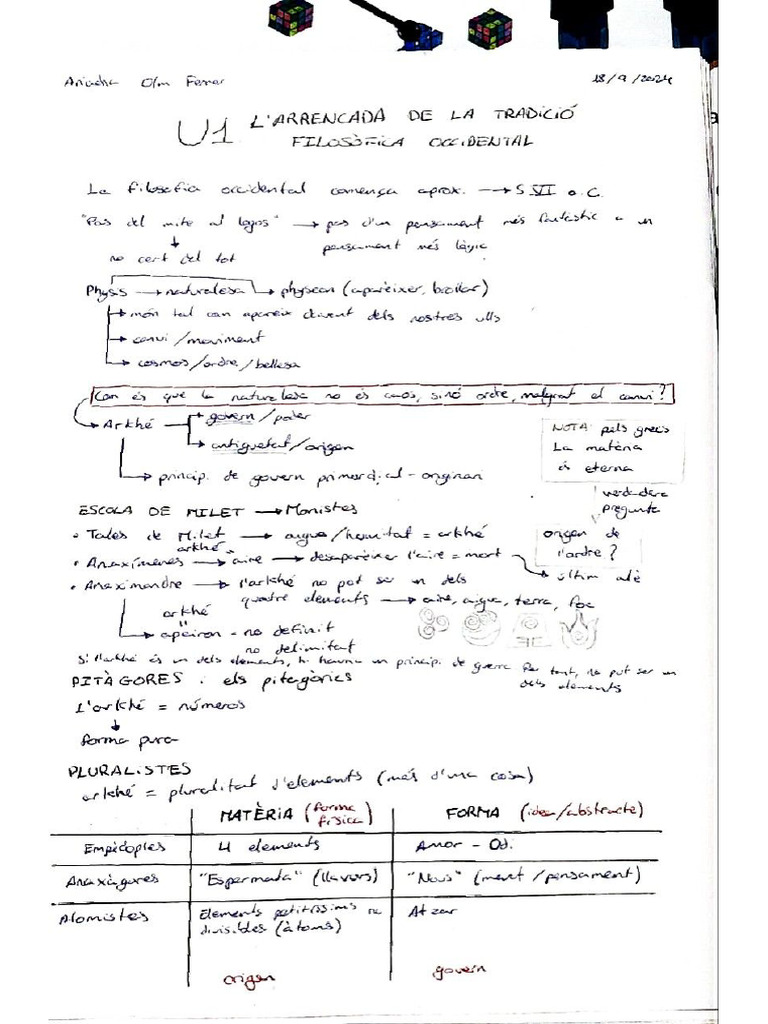 18/9/2024
U1 L'ARRENCADA DE LA TRADICIÓ
FILOSÒFICA OCCIDENTAL
La filosofia occidental comença aprox. → S.VI a.C.
"Pas del mite al logos" → pas d'un pensament més fantastic a un
pensament més lògic
no cert del tot
Physis → naturalesa → physean (aparèixer, brollar)
→ món tal com apareix davant dels nostres ulls
→ canvi/moviment
→ cosmos/ordre/bellesa
Com és que la naturalesa no és caos, sinó ordre, malgrat el canvi?
→ Arkhé → govern/poder
→ antiguetat/origen
→ princip. de govern primordial-originari
NOTA pels grecs
La matèria
és eterna
verdadera
pregunta
origen de
l'ordre?
ESCOLA DE MILET → Monistes
• Tales de Milet → aigua/humitat = arkhé
arkhé
• Anaxímenes → aire → desaparèixer l'aire = mort → últim alè
• Anaximandre → l'arkhé no pot ser un dels
quatre elements → aire, aigua, terra, foc
arkhé
"
→ apeiron - no definit
no delimitat
Si l'arkhé és un dels elements, hi hauria un princip. de guerra. Per tant, no pot ser un
dels elements
PITÀGORES i els pitagòrics
L'arkhé = números
forma pura
PLURALISTES
arkhé = pluralitat d'elements (més d'una cosa)
MATÈRIA (forma física) FORMA (idea/abstracte)
Empèdocles 4 elements Amor - Odi
Anaxàgores "Espermata" (llavors) "Nous" (ment/pensament)
Atomistes Elements petitíssims no divisibles (àtoms) Atzar
origen govern